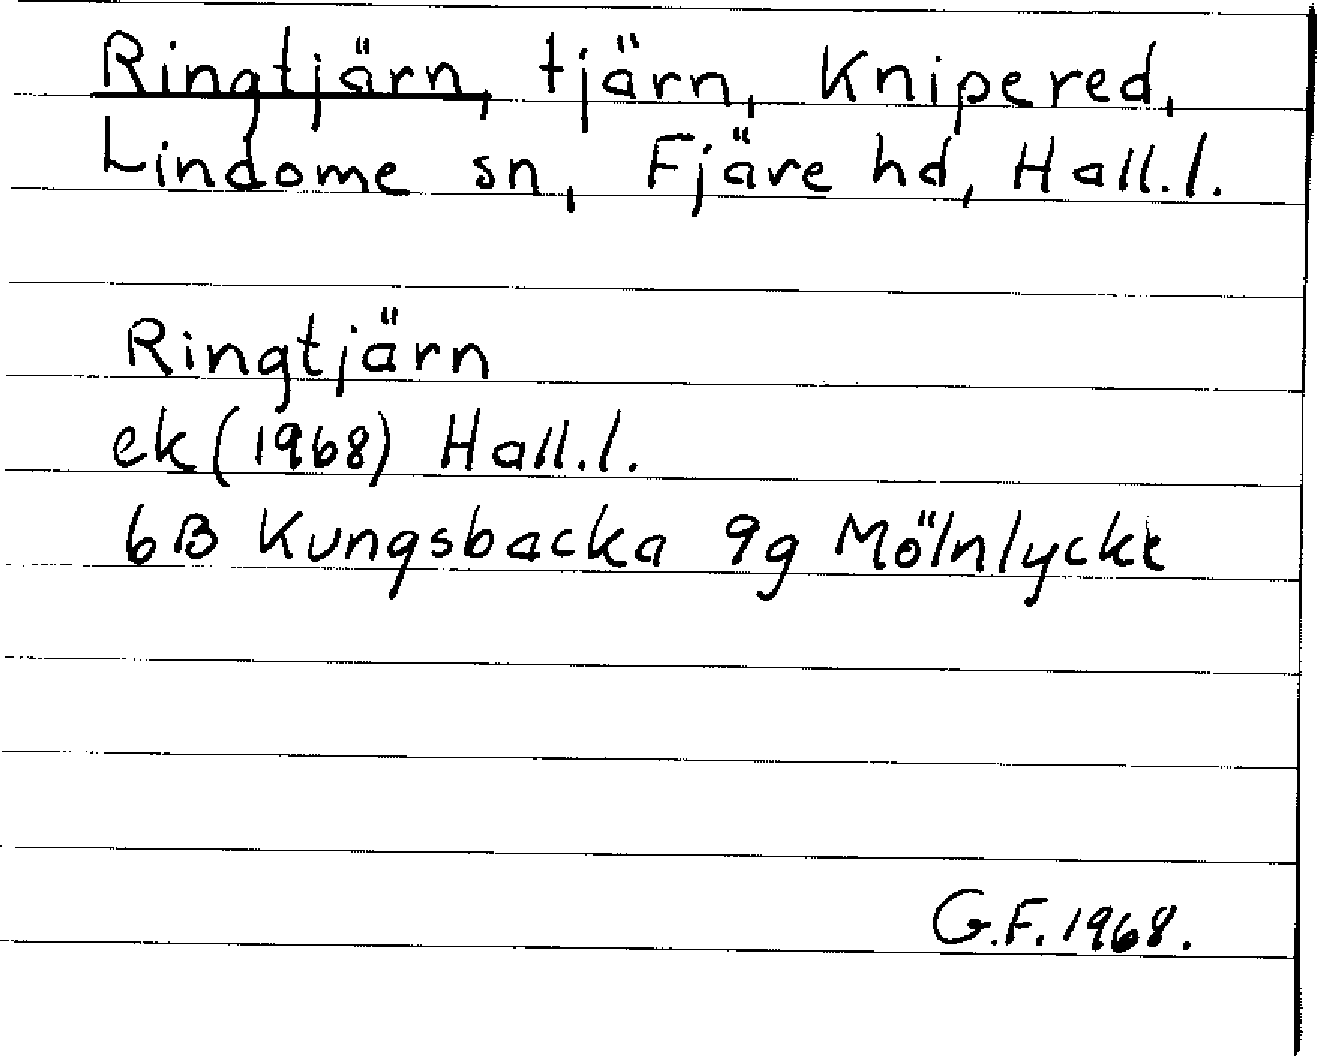 Ringtjärn, tjärn, Knipered,
Lindome sn, Fjäre hd, Hall.l.
Ringtjärn
ek (1968) Hall.l.
6B Kungsbacka 9g Mölnlycke
G.F. 1968.